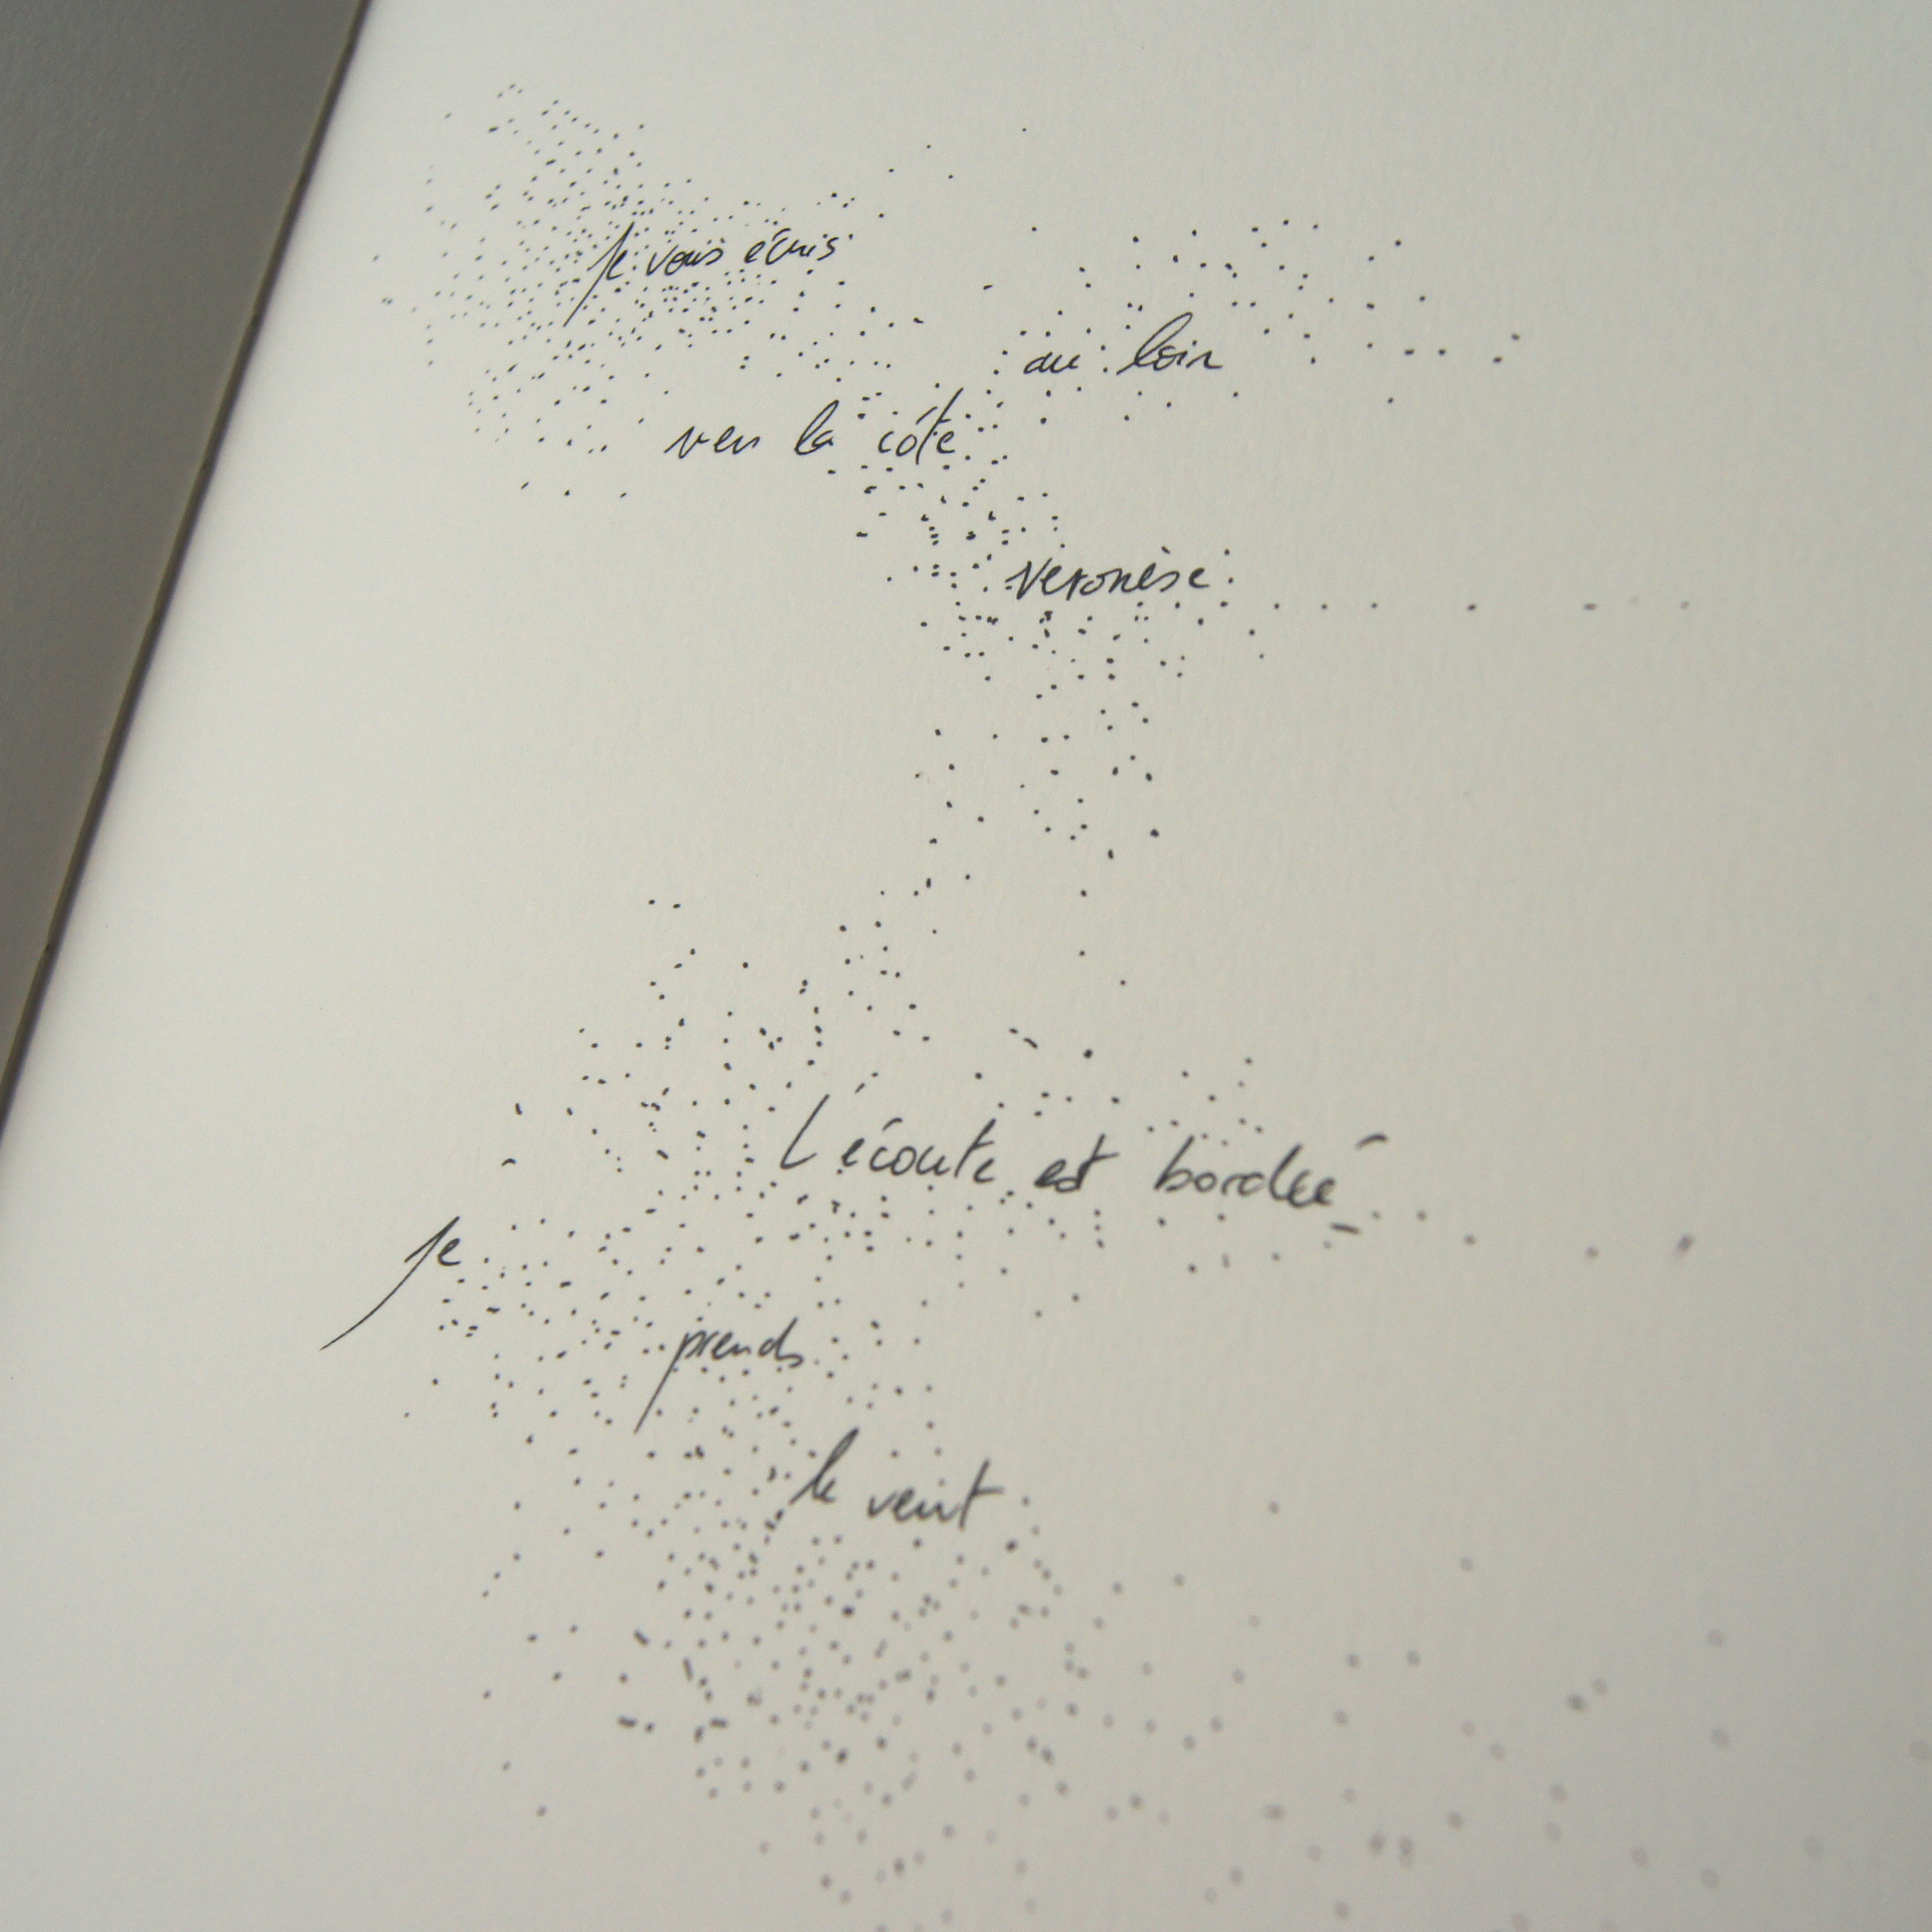 Je vous écris
au loin
vers la côte
Véronèse
L'écoute est bordée
je
prends
le vent